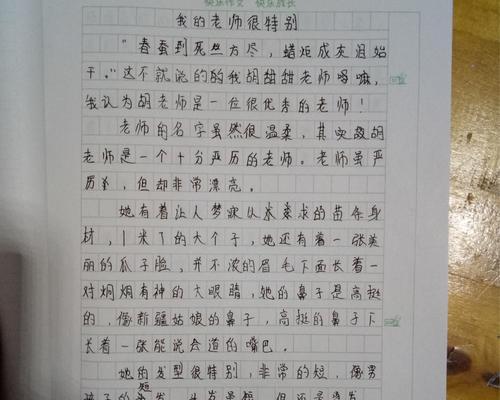 快乐作文 快乐成长
我的老师很特别
"春蚕到死丝方尽，蜡炬成灰泪始
干。"这不就能的的我胡甜甜老师吗嘛，
我认为胡老师是一位很优秀的老师！
老师的名字虽然很温柔，其实敌胡
老师是一个十分严历的老师。老师虽严
历，但却非常漂亮。
她有着让人梦寐以求的苗条身
材，1米了的大个子，她还有着一张美
丽的瓜子脸，并不浓的眉毛下面长着一
对炯炯有神的大眼睛，她的鼻子是高挺
的，像新疆姑娘的鼻子，高挺的鼻子下
长着一张能说会道的嘴巴。
她的发型很特别，非常的短，像男
孩子的短发